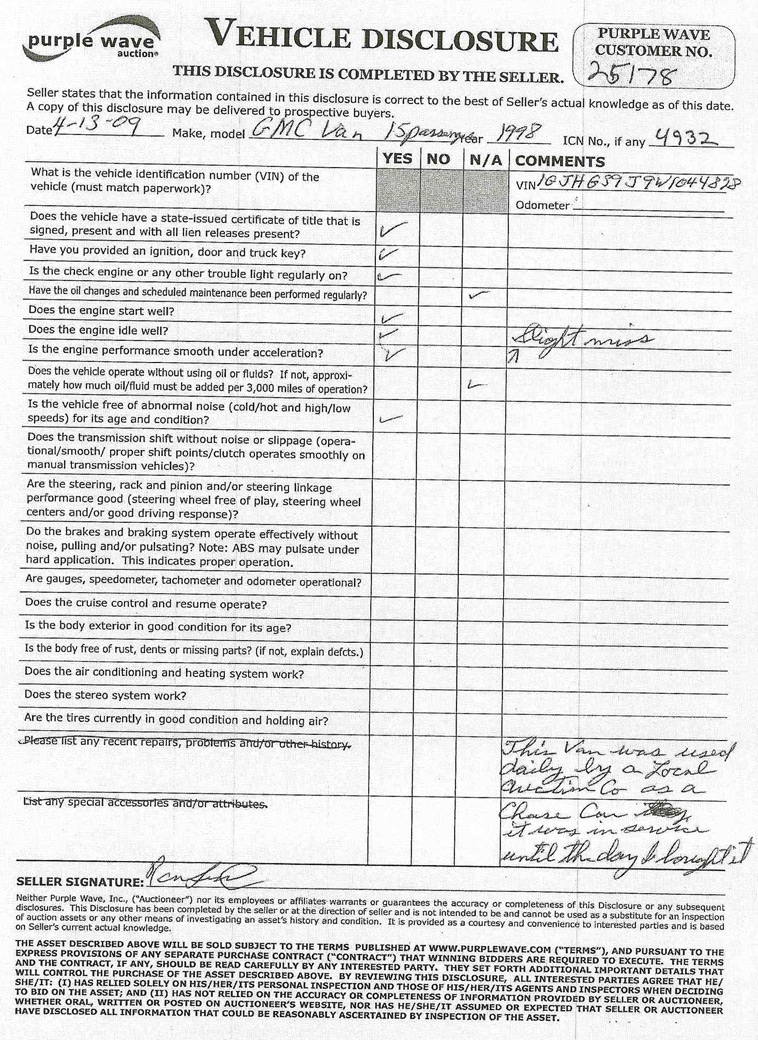 purple wave
auction®
VEHICLE DISCLOSURE
THIS DISCLOSURE IS COMPLETED BY THE SELLER.
PURPLE WAVE
CUSTOMER NO.
25178
Seller states that the information contained in this disclosure is correct to the best of Seller's actual knowledge as of this date.
A copy of this disclosure may be delivered to prospective buyers.
Date 4-13-09 Make, model GMC Van 15 passenger Year 1998 ICN No., if any 4932
YES NO N/A COMMENTS
What is the vehicle identification number (VIN) of the
vehicle (must match paperwork)?
VIN 1GJHG39J9W1044828
Odometer
Does the vehicle have a state-issued certificate of title that is
signed, present and with all lien releases present?
Have you provided an ignition, door and truck key?
Is the check engine or any other trouble light regularly on?
Have the oil changes and scheduled maintenance been performed regularly?
Does the engine start well?
Does the engine idle well? Slight miss
Is the engine performance smooth under acceleration?
Does the vehicle operate without using oil or fluids? If not, approxi-
mately how much oil/fluid must be added per 3,000 miles of operation?
Is the vehicle free of abnormal noise (cold/hot and high/low
speeds) for its age and condition?
Does the transmission shift without noise or slippage (opera-
tional/smooth/ proper shift points/clutch operates smoothly on
manual transmission vehicles)?
Are the steering, rack and pinion and/or steering linkage
performance good (steering wheel free of play, steering wheel
centers and/or good driving response)?
Do the brakes and braking system operate effectively without
noise, pulling and/or pulsating? Note: ABS may pulsate under
hard application. This indicates proper operation.
Are gauges, speedometer, tachometer and odometer operational?
Does the cruise control and resume operate?
Is the body exterior in good condition for its age?
Is the body free of rust, dents or missing parts? (if not, explain defcts.)
Does the air conditioning and heating system work?
Does the stereo system work?
Are the tires currently in good condition and holding air?
Please list any recent repairs, problems and/or other history.
This Van was used
daily by a Local
Auction Co as a
List any special accessories and/or attributes.
Chase Car
it was in service
until the day I bought it
SELLER SIGNATURE:
Neither Purple Wave, Inc., ("Auctioneer") nor its employees or affiliates warrants or guarantees the accuracy or completeness of this Disclosure or any subsequent
disclosures. This Disclosure has been completed by the seller or at the direction of seller and is not intended to be and cannot be used as a substitute for an inspection
of auction assets or any other means of investigating an asset's history and condition. It is provided as a courtesy and convenience to interested parties and is based
on Seller's current actual knowledge.
THE ASSET DESCRIBED ABOVE WILL BE SOLD SUBJECT TO THE TERMS PUBLISHED AT WWW.PURPLEWAVE.COM ("TERMS"), AND PURSUANT TO THE
EXPRESS PROVISIONS OF ANY SEPARATE PURCHASE CONTRACT ("CONTRACT") THAT WINNING BIDDERS ARE REQUIRED TO EXECUTE. THE TERMS
AND THE CONTRACT, IF ANY, SHOULD BE READ CAREFULLY BY ANY INTERESTED PARTY. THEY SET FORTH ADDITIONAL IMPORTANT DETAILS THAT
WILL CONTROL THE PURCHASE OF THE ASSET DESCRIBED ABOVE. BY REVIEWING THIS DISCLOSURE, ALL INTERESTED PARTIES AGREE THAT HE/
SHE/IT: (I) HAS RELIED SOLELY ON HIS/HER/ITS PERSONAL INSPECTION AND THOSE OF HIS/HER/ITS AGENTS AND INSPECTORS WHEN DECIDING
TO BID ON THE ASSET; AND (II) HAS NOT RELIED ON THE ACCURACY OR COMPLETENESS OF INFORMATION PROVIDED BY SELLER OR AUCTIONEER,
WHETHER ORAL, WRITTEN OR POSTED ON AUCTIONEER'S WEBSITE, NOR HAS HE/SHE/IT ASSUMED OR EXPECTED THAT SELLER OR AUCTIONEER
HAVE DISCLOSED ALL INFORMATION THAT COULD BE REASONABLY ASCERTAINED BY INSPECTION OF THE ASSET.